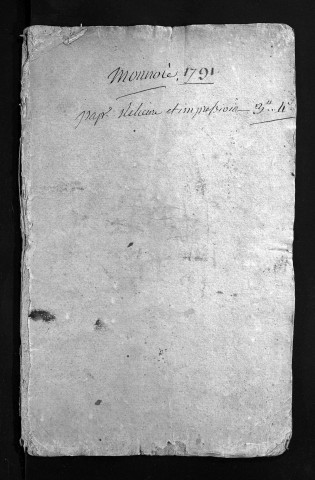 Monnoie, 1791
papr. Reliure et impression 3# 4s